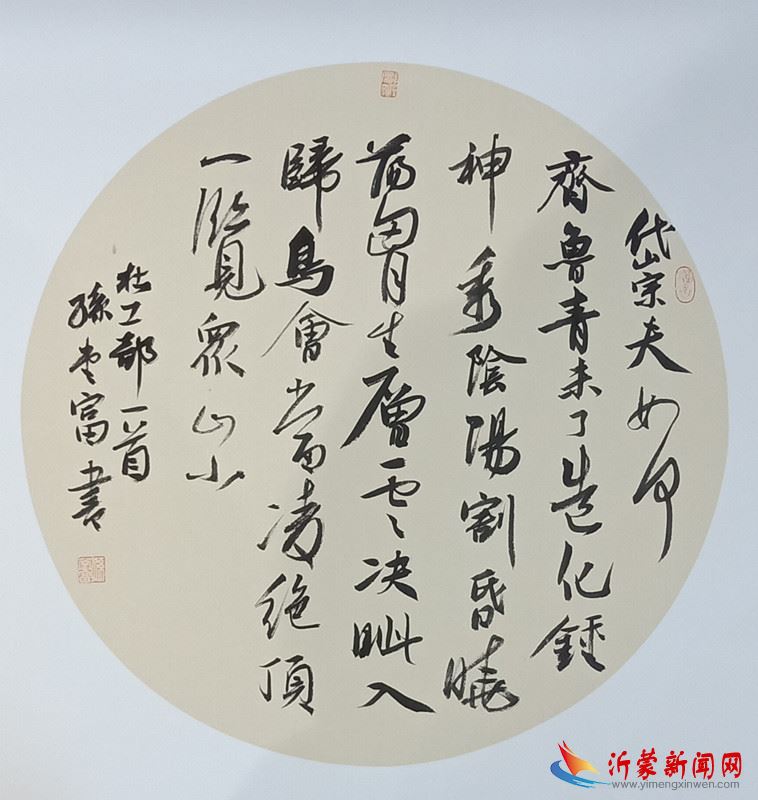 岱宗夫如何
齊魯青未了造化鍾
神秀陰陽割昏曉
蕩胷生層雲決眦入
歸鳥會當凌絶頂
一覽眾山小
杜工部一首
孫 富書
沂蒙新闻网
www.yimengxinwen.com